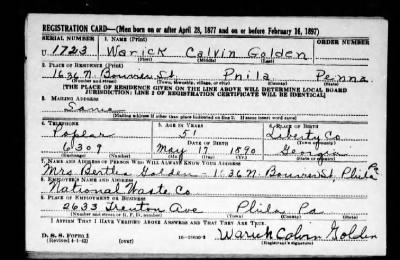 REGISTRATION CARD—(Men born on or after April 28, 1877 and on or before February 16, 1897)
SERIAL NUMBER 1. NAME (Print) ORDER NUMBER
U 1723 Warick Calvin Golden
(First) (Middle) (Last)
2. PLACE OF RESIDENCE (Print)
1636 N. Bouvier St. Phila Penna.
(Number and street) (Town, township, village, or city) (County) (State)
[THE PLACE OF RESIDENCE GIVEN ON THE LINE ABOVE WILL DETERMINE LOCAL BOARD
JURISDICTION; LINE 2 OF REGISTRATION CERTIFICATE WILL BE IDENTICAL]
3. MAILING ADDRESS
Same
[Mailing address if other than place indicated on line 2. If same insert word same]
4. TELEPHONE 5. AGE IN YEARS 6. PLACE OF BIRTH
Poplar 51 Liberty Co.
DATE OF BIRTH (Town or county)
6309 May 17 1890 Georgia
(Exchange) (Number) (Mo.) (Day) (Yr.) (State or country)
7. NAME AND ADDRESS OF PERSON WHO WILL ALWAYS KNOW YOUR ADDRESS
Mrs Bertha Golden - 1636 N. Bouvier St, Phila Pa
8. EMPLOYER'S NAME AND ADDRESS
National Waste Co
9. PLACE OF EMPLOYMENT OR BUSINESS
2633 Trenton Ave Phila Pa
(Number and street or R. F. D. number) (Town) (County) (State)
I AFFIRM THAT I HAVE VERIFIED ABOVE ANSWERS AND THAT THEY ARE TRUE.
D. S. S. FORM 1
(Revised 4-1-42) (over) Warick Calvin Golden
(Registrant's signature)